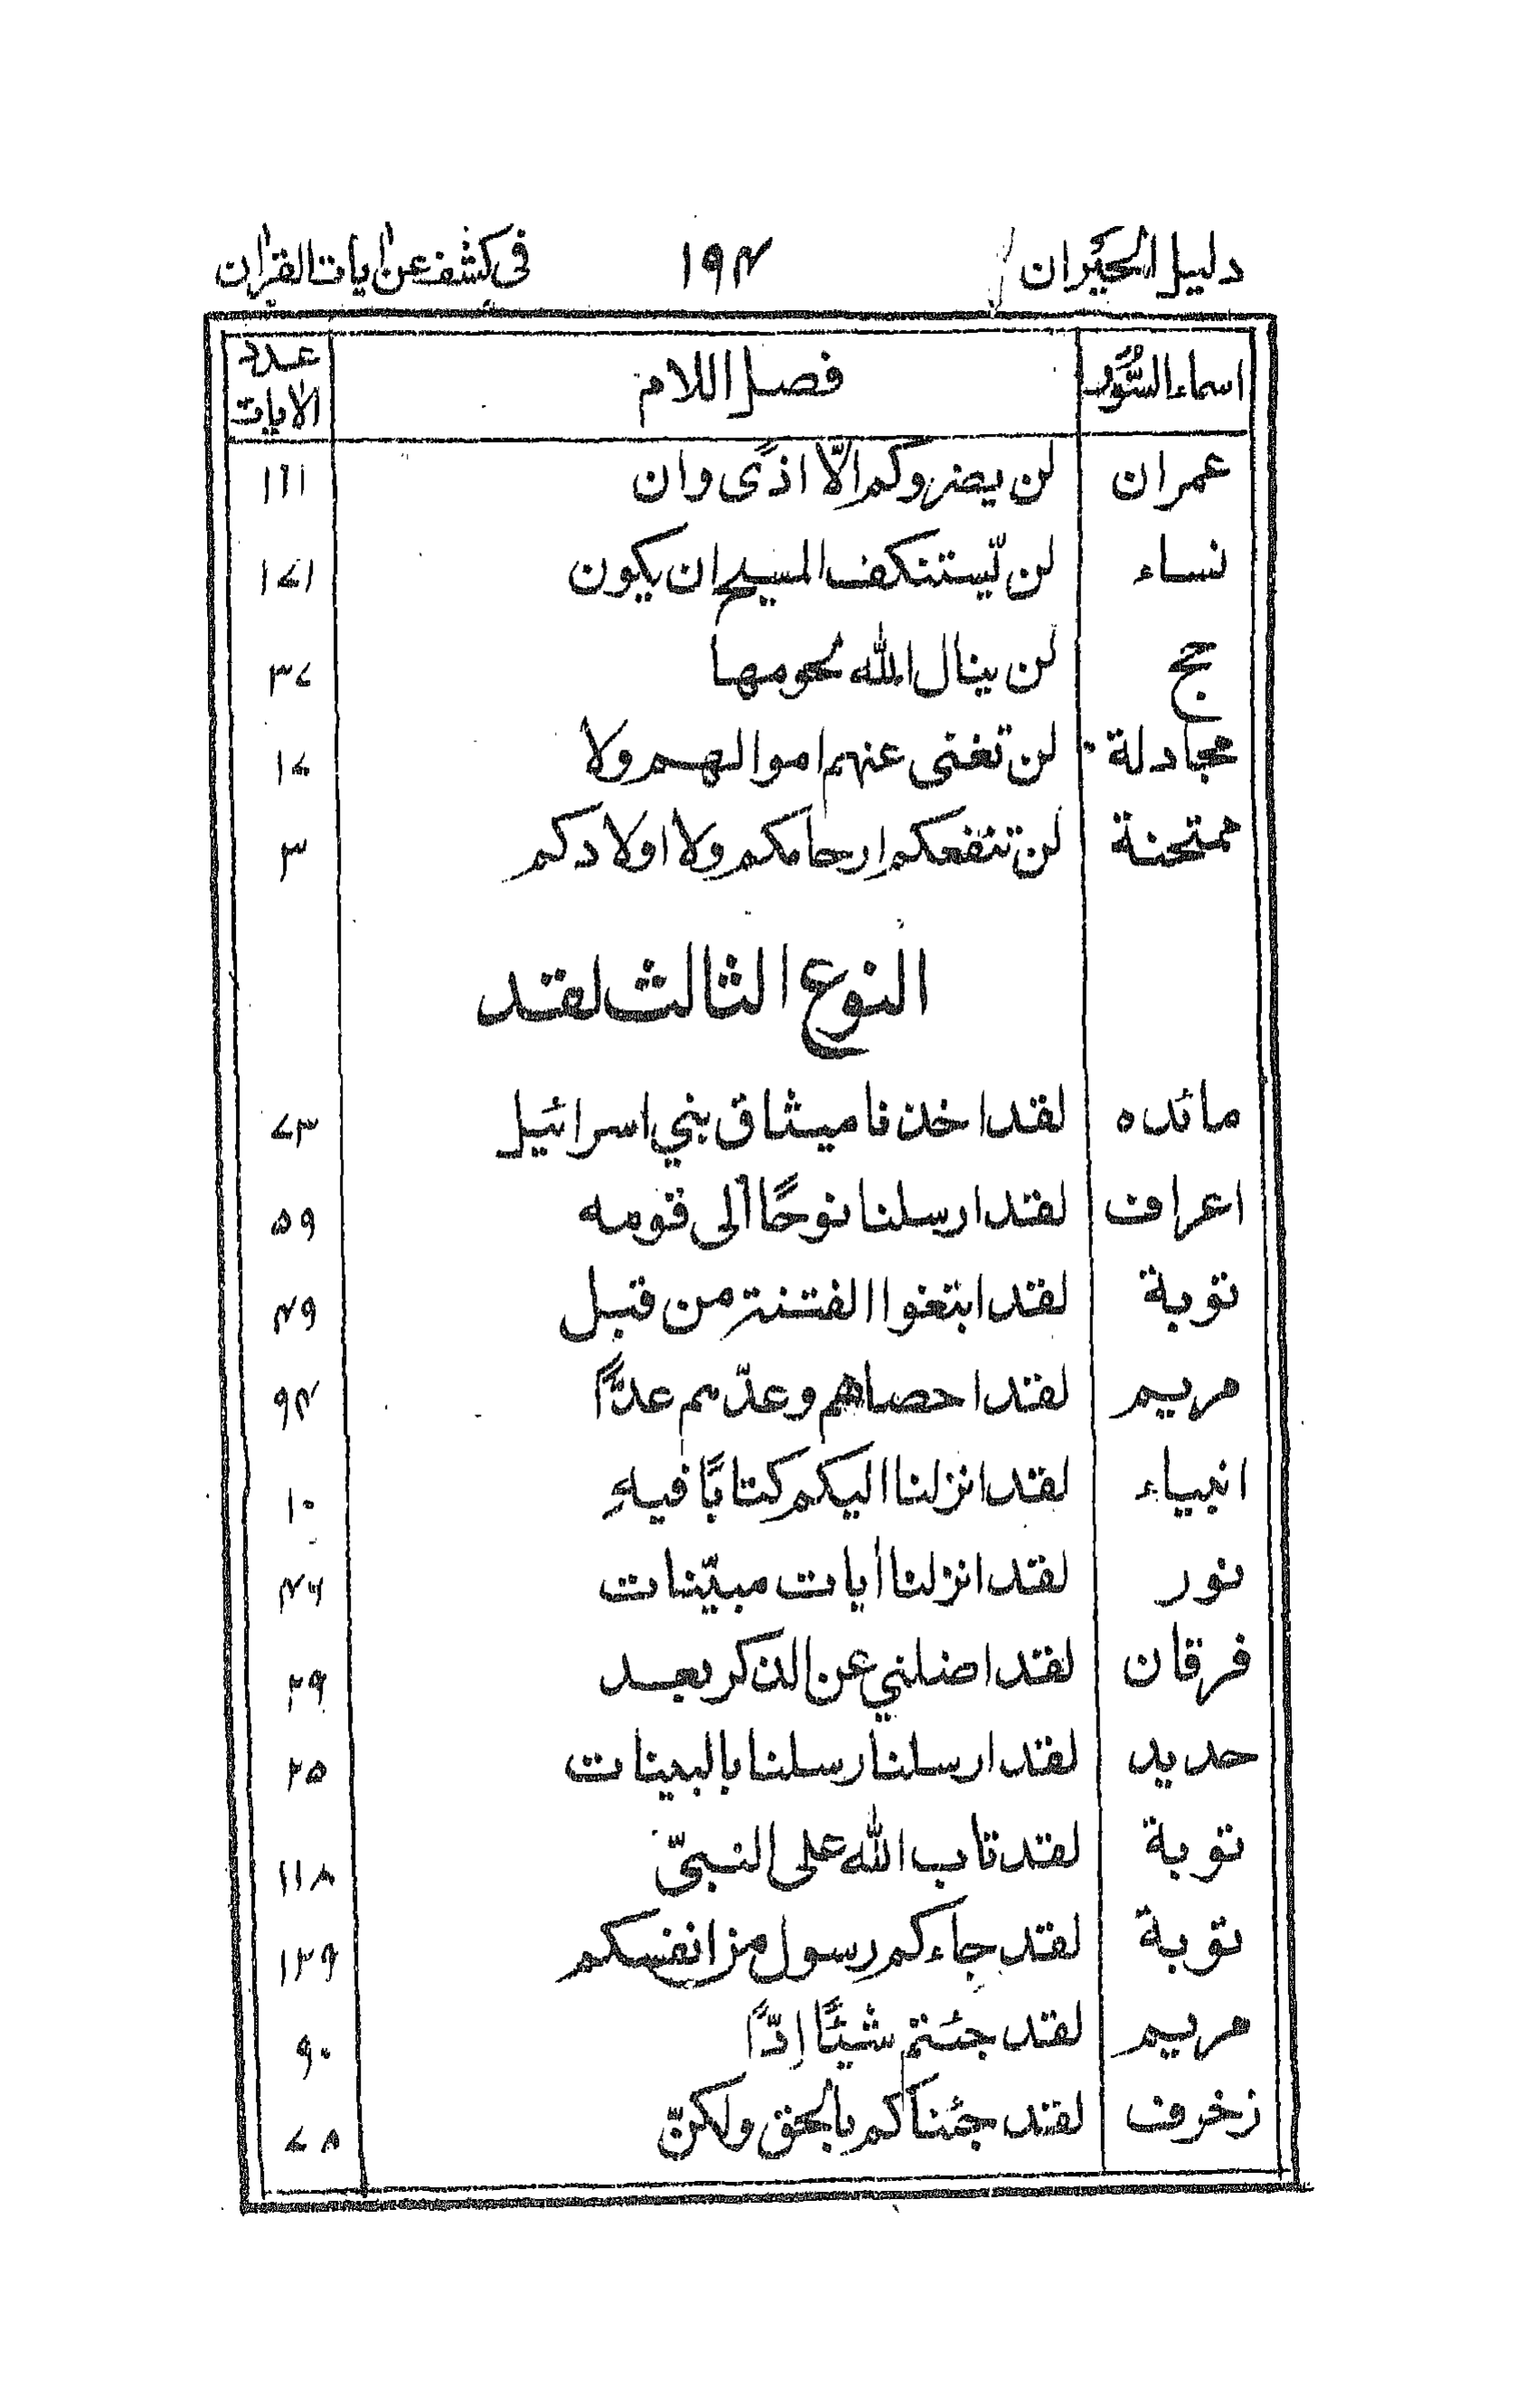 دليل الحيران ١٩٤ في كشف عن اٰيات القراٰن
اسماء السُّوَر فصل اللام عدد الاٰيات
عمران لن يضروكم الّا اذًى وان ١١١
نساء لن يّستنكف المسيح ان يكون ١٧١
حج لن ينال الله لحومها ٣٧
مجادلة لن تغنى عنهم اموالهم ولا ١٧
ممتحنة لن تنفعكم ارحامكم ولا اولادكم ٣
النوع الثالث لقد
مائده لقد اخذنا ميثاق بني اسرائيل ٧٣
اعراف لقد ارسلنا نوحًا الى قومه ٥٩
توبة لقد ابتغوا الفتنة من قبل ٤٩
مريم لقد احصاهم وعدّهم عدًّا ٩٤
انبياء لقد انزلنا اليكم كتابًا فيهِ ١٠
نور لقد انزلنا اٰيات مبيّنات ٤٦
فرقان لقد اضلني عن الذكر بعد ٢٩
حديد لقد ارسلنا رسلنا بالبينات ٢٥
توبة لقد تاب الله على النبيّ ١١٨
توبة لقد جاءكم رسول من انفسكم ١٢٩
مريم لقد جئتم شيئًا اِدًّا ٩٠
زخرف لقد جئناكم بالحق ولكنّ ٧٨